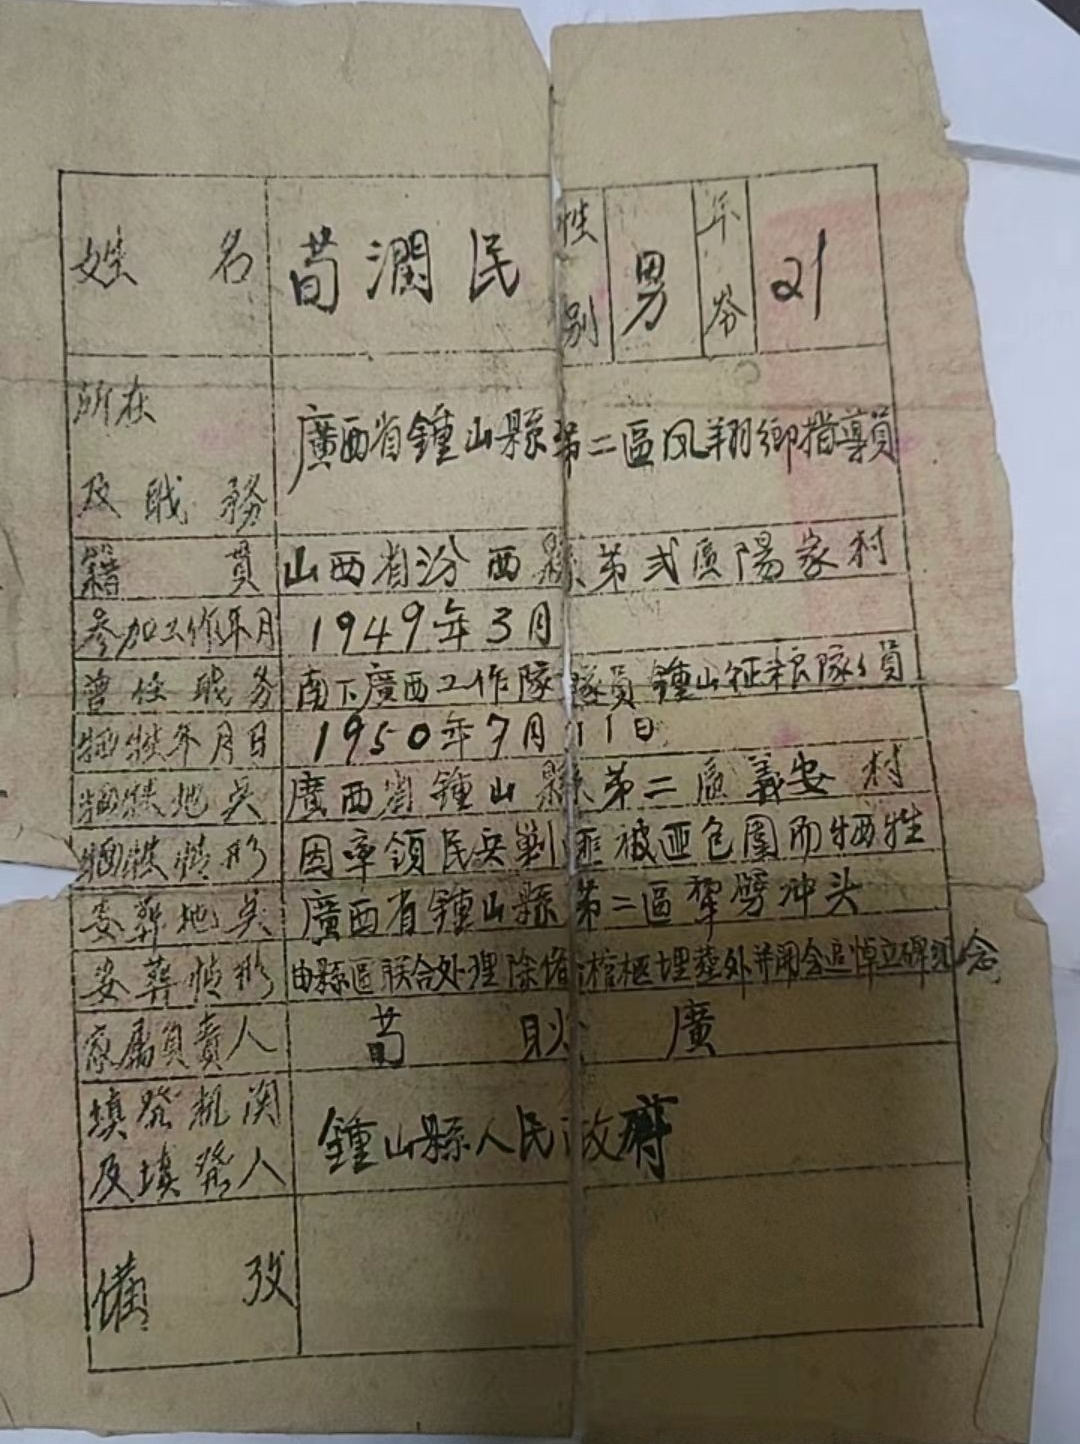 姓名 荀潤民 性别 男 年令 21
所在及職務 廣西省鍾山縣第二區凤翔鄉指導員
籍貫 山西省汾西縣第弍區陽家村
参加工作年月 1949年3月
曾任職务 南下廣西工作隊隊員 鍾山征粮隊隊員
牺牲年月日 1950年7月11日
牺牲地点 廣西省鍾山縣第二區義安村
牺牲情形 因率領民兵剿匪被匪包围而牺牲
安葬地点 廣西省鍾山縣第二區犂劈冲头
安葬情形 由縣區联合处理除俻棺柩埋葬外并開会追悼立碑纪念
家属負責人 荀 廣
填發机関及填發人 鍾山縣人民政府
備攷